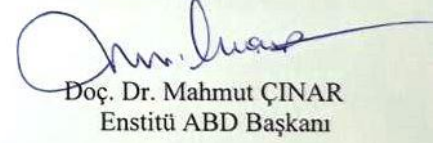 Doç. Dr. Mahmut ÇINAR
Enstitü ABD Başkanı